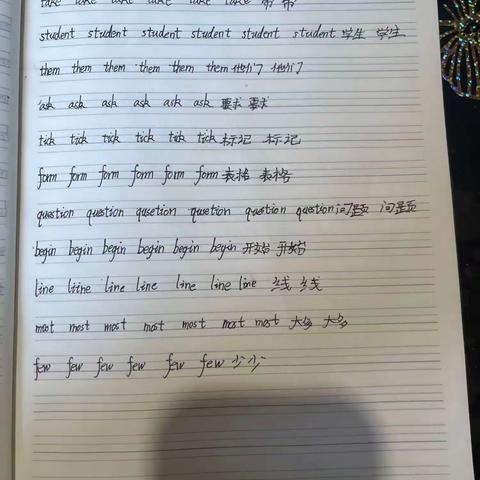 take take take take take take 带 带
student student student student student student 学生 学生
them them them them them them 他们 他们
ask ask ask ask ask ask 要求 要求
tick tick tick tick tick tick 标记 标记
form form form form form form 表格 表格
question question qusetion qusetion question question 问题 问题
begin begin begin begin begin begin 开始 开始
line liine line line line line line 线 线
most most most most most most most 大多 大多
few few few few few few 少 少